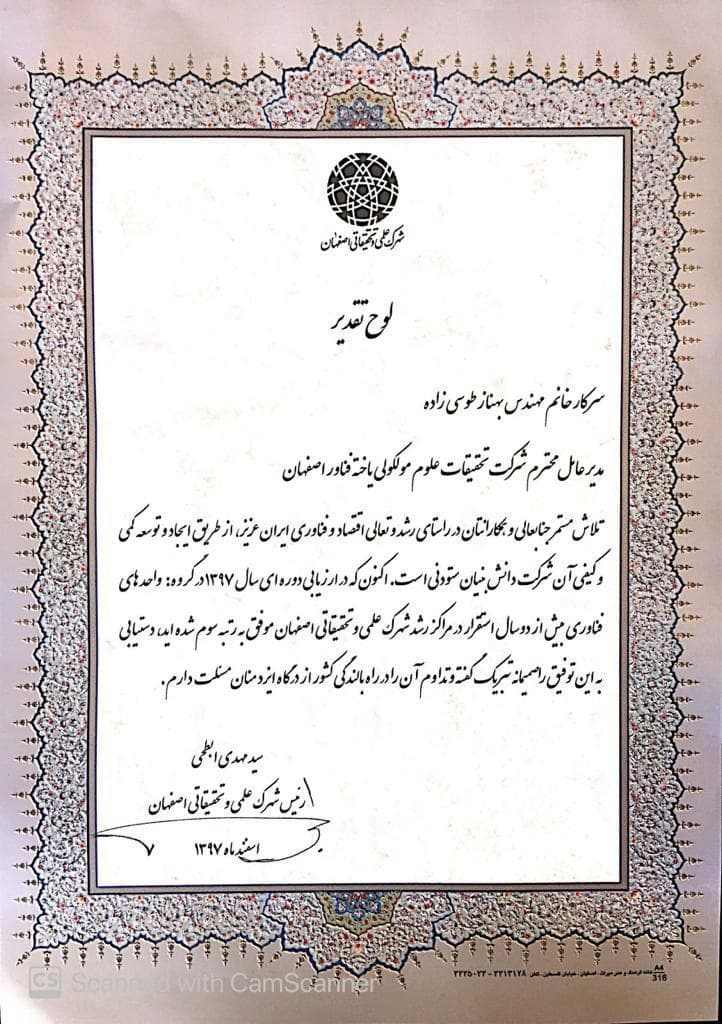 شهرک علمی و تحقیقاتی اصفهان
لوح تقدیر
سرکار خانم مهندس بهناز طوسی زاده
مدیر عامل محترم شرکت تحقیقات علوم مولکولی یاخته فناور اصفهان
تلاش مستمر جنابعالی و همکارانتان در راستای رشد و تعالی اقتصاد و فناوری ایران عزیز، از طریق ایجاد و توسعه کمی
و کیفی آن شرکت دانش بنیان ستودنی است. اکنون که در ارزیابی دوره ای سال ۱۳۹۷ در گروه: واحدهای
فناوری بیش از دو سال استقرار در مراکز رشد شهرک علمی و تحقیقاتی اصفهان موفق به رتبه سوم شده اید، دستیابی
به این توفیق را صمیمانه تبریک گفته و تداوم آن را در راه بالندگی کشور از درگاه ایزد منان مسئلت دارم.
سید مهدی ابطحی
رئیس شهرک علمی و تحقیقاتی اصفهان
اسفند ماه ۱۳۹۷
خانه فرهنگ و هنر میراث - اصفهان - خیابان فلسطین - تلفن ۲۲۱۳۱۷۸ - ۲۲۲۵۰۲۲
A4
316
CS Scanned with CamScanner